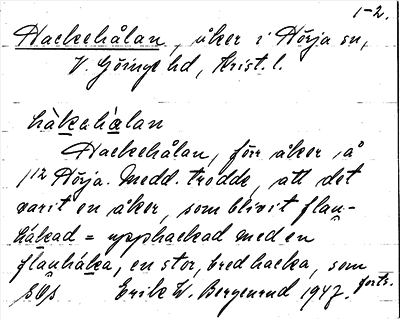 1-2.
Hackehålan, åker i Hörja sn,
V. Göinge hd, Krist. l.
hàkahàlan
Hackehålan, förr åker å
1/12 Hörja. Medd. trodde, att det
varit en åker, som blivit flau-
hákad = upphackad med en
flauháka, en stor, bred hacka, som
forts.
SOs Erik W. Bergenrud 1947.